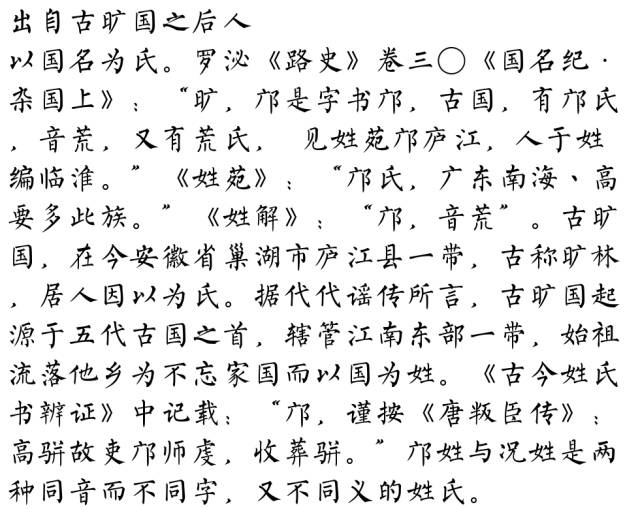 出自古旷国之后人
以国名为氏。罗泌《路史》卷三〇《国名纪·
杂国上》：“旷，邝是字书邝，古国，有邝氏
，音荒，又有荒氏， 见姓苑邝庐江，人于姓
编临淮。”《姓苑》：“邝氏，广东南海、高
要多此族。”《姓解》：“邝，音荒”。古旷
国，在今安徽省巢湖市庐江县一带，古称旷林
，居人因以为氏。据代代谣传所言，古旷国起
源于五代古国之首，辖管江南东部一带，始祖
流落他乡为不忘家国而以国为姓。《古今姓氏
书辨证》中记载：“邝，谨按《唐叛臣传》：
高骈故吏邝师虔，收葬骈。”邝姓与况姓是两
种同音而不同字，又不同义的姓氏。